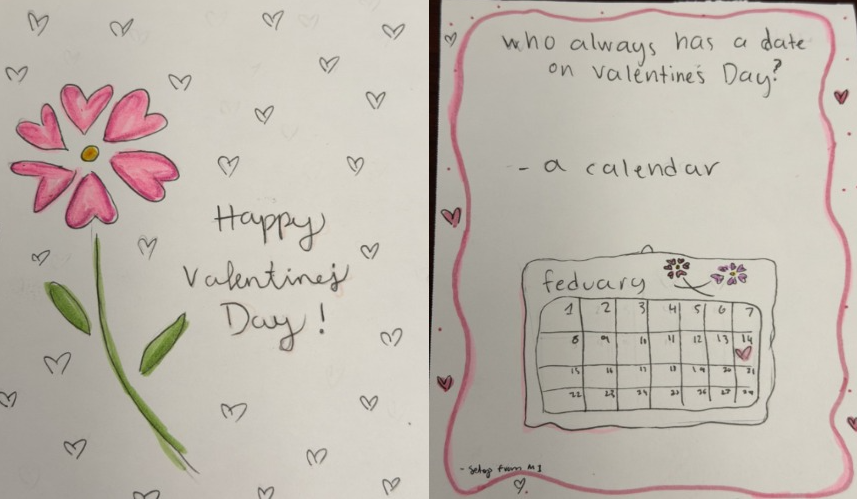 Happy
Valentine's
Day!
who always has a date
on Valentine's Day?
- a calendar
feduary
1 2 3 4 5 6 7
8 9 10 11 12 13 14
15 16 17 18 19 20 21
22 23 24 25 26 27 28
from